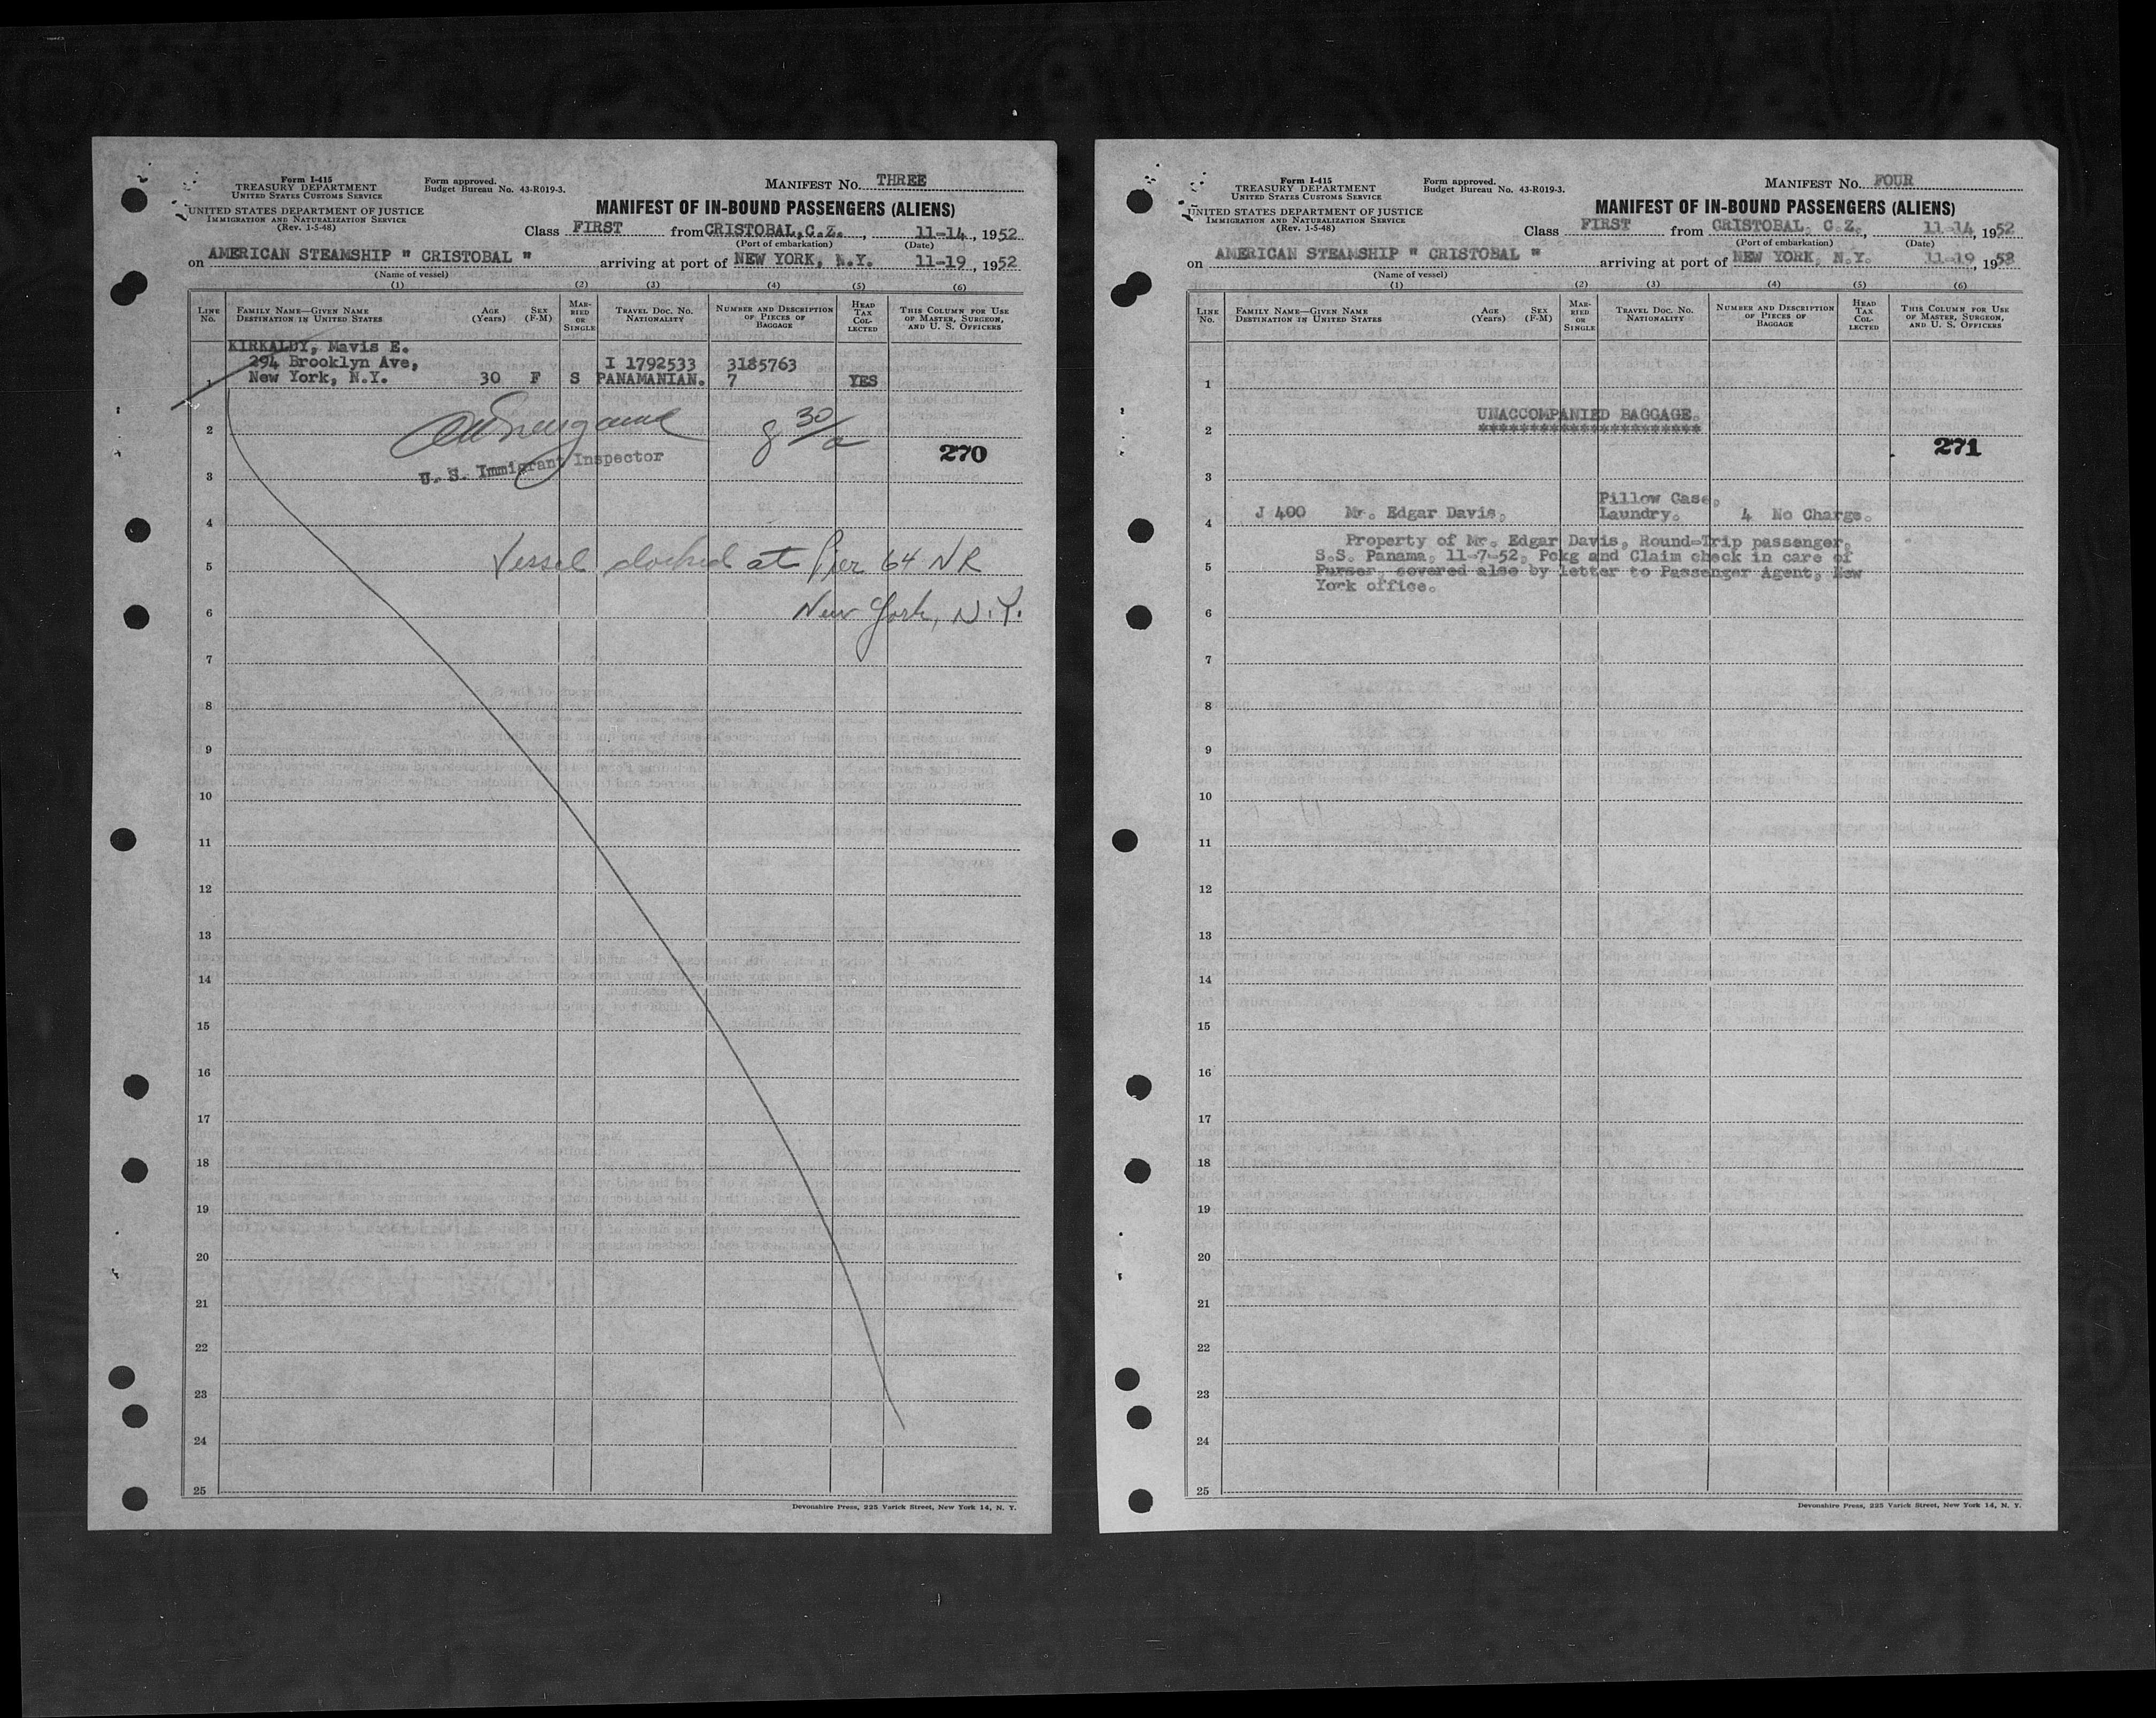 Form I-415
TREASURY DEPARTMENT
UNITED STATES CUSTOMS SERVICE
UNITED STATES DEPARTMENT OF JUSTICE
IMMIGRATION AND NATURALIZATION SERVICE
(Rev. 1-5-48)
Form approved.
Budget Bureau No. 43-R019-3.
MANIFEST No. THREE
MANIFEST OF IN-BOUND PASSENGERS (ALIENS)
Class FIRST from CRISTOBAL, C.Z., 11-14, 1952
(Port of embarkation) (Date)
on AMERICAN STEAMSHIP " CRISTOBAL " arriving at port of NEW YORK, N.Y. 11-19, 1952
(Name of vessel)
(1) (2) (3) (4) (5) (6)
LINE No. FAMILY NAME—GIVEN NAME DESTINATION IN UNITED STATES AGE (Years) SEX (F-M) MARRIED OR SINGLE TRAVEL DOC. NO. NATIONALITY NUMBER AND DESCRIPTION OF PIECES OF BAGGAGE HEAD TAX COLLECTED THIS COLUMN FOR USE OF MASTER, SURGEON, AND U. S. OFFICERS
KIRKALDY, Mavis E.
294 Brooklyn Ave, I 1792533 3185763
1 New York, N.Y. 30 F S PANAMANIAN. 7 YES
2 8 30/a
270
U. S. Immigrant Inspector
3
4
Vessel docked at Pier 64 NR
5
New York, N.Y.
6
7
8
9
10
11
12
13
14
15
16
17
18
19
20
21
22
23
24
25
Devonshire Press, 225 Varick Street, New York 14, N. Y.
Form I-415
TREASURY DEPARTMENT
UNITED STATES CUSTOMS SERVICE
UNITED STATES DEPARTMENT OF JUSTICE
IMMIGRATION AND NATURALIZATION SERVICE
(Rev. 1-5-48)
Form approved.
Budget Bureau No. 43-R019-3.
MANIFEST No. FOUR
MANIFEST OF IN-BOUND PASSENGERS (ALIENS)
Class FIRST from CRISTOBAL, C.Z., 11-14, 1952
(Port of embarkation) (Date)
on AMERICAN STEAMSHIP " CRISTOBAL " arriving at port of NEW YORK, N.Y. 11-19, 1952
(Name of vessel)
(1) (2) (3) (4) (5) (6)
LINE No. FAMILY NAME—GIVEN NAME DESTINATION IN UNITED STATES AGE (Years) SEX (F-M) MARRIED OR SINGLE TRAVEL DOC. NO. NATIONALITY NUMBER AND DESCRIPTION OF PIECES OF BAGGAGE HEAD TAX COLLECTED THIS COLUMN FOR USE OF MASTER, SURGEON, AND U. S. OFFICERS
1
UNACCOMPANIED BAGGAGE.
2 *********************
271
3
Pillow Case,
4 J 400 Mr. Edgar Davis, Laundry. 4 No Charge.
Property of Mr. Edgar Davis, Round-Trip passenger,
S.S. Panama, 11-7-52, Pckg and Claim check in care of
5 Purser, covered also by letter to Passenger Agent, New
York office.
6
7
8
9
10
11
12
13
14
15
16
17
18
19
20
21
22
23
24
25
Devonshire Press, 225 Varick Street, New York 14, N. Y.